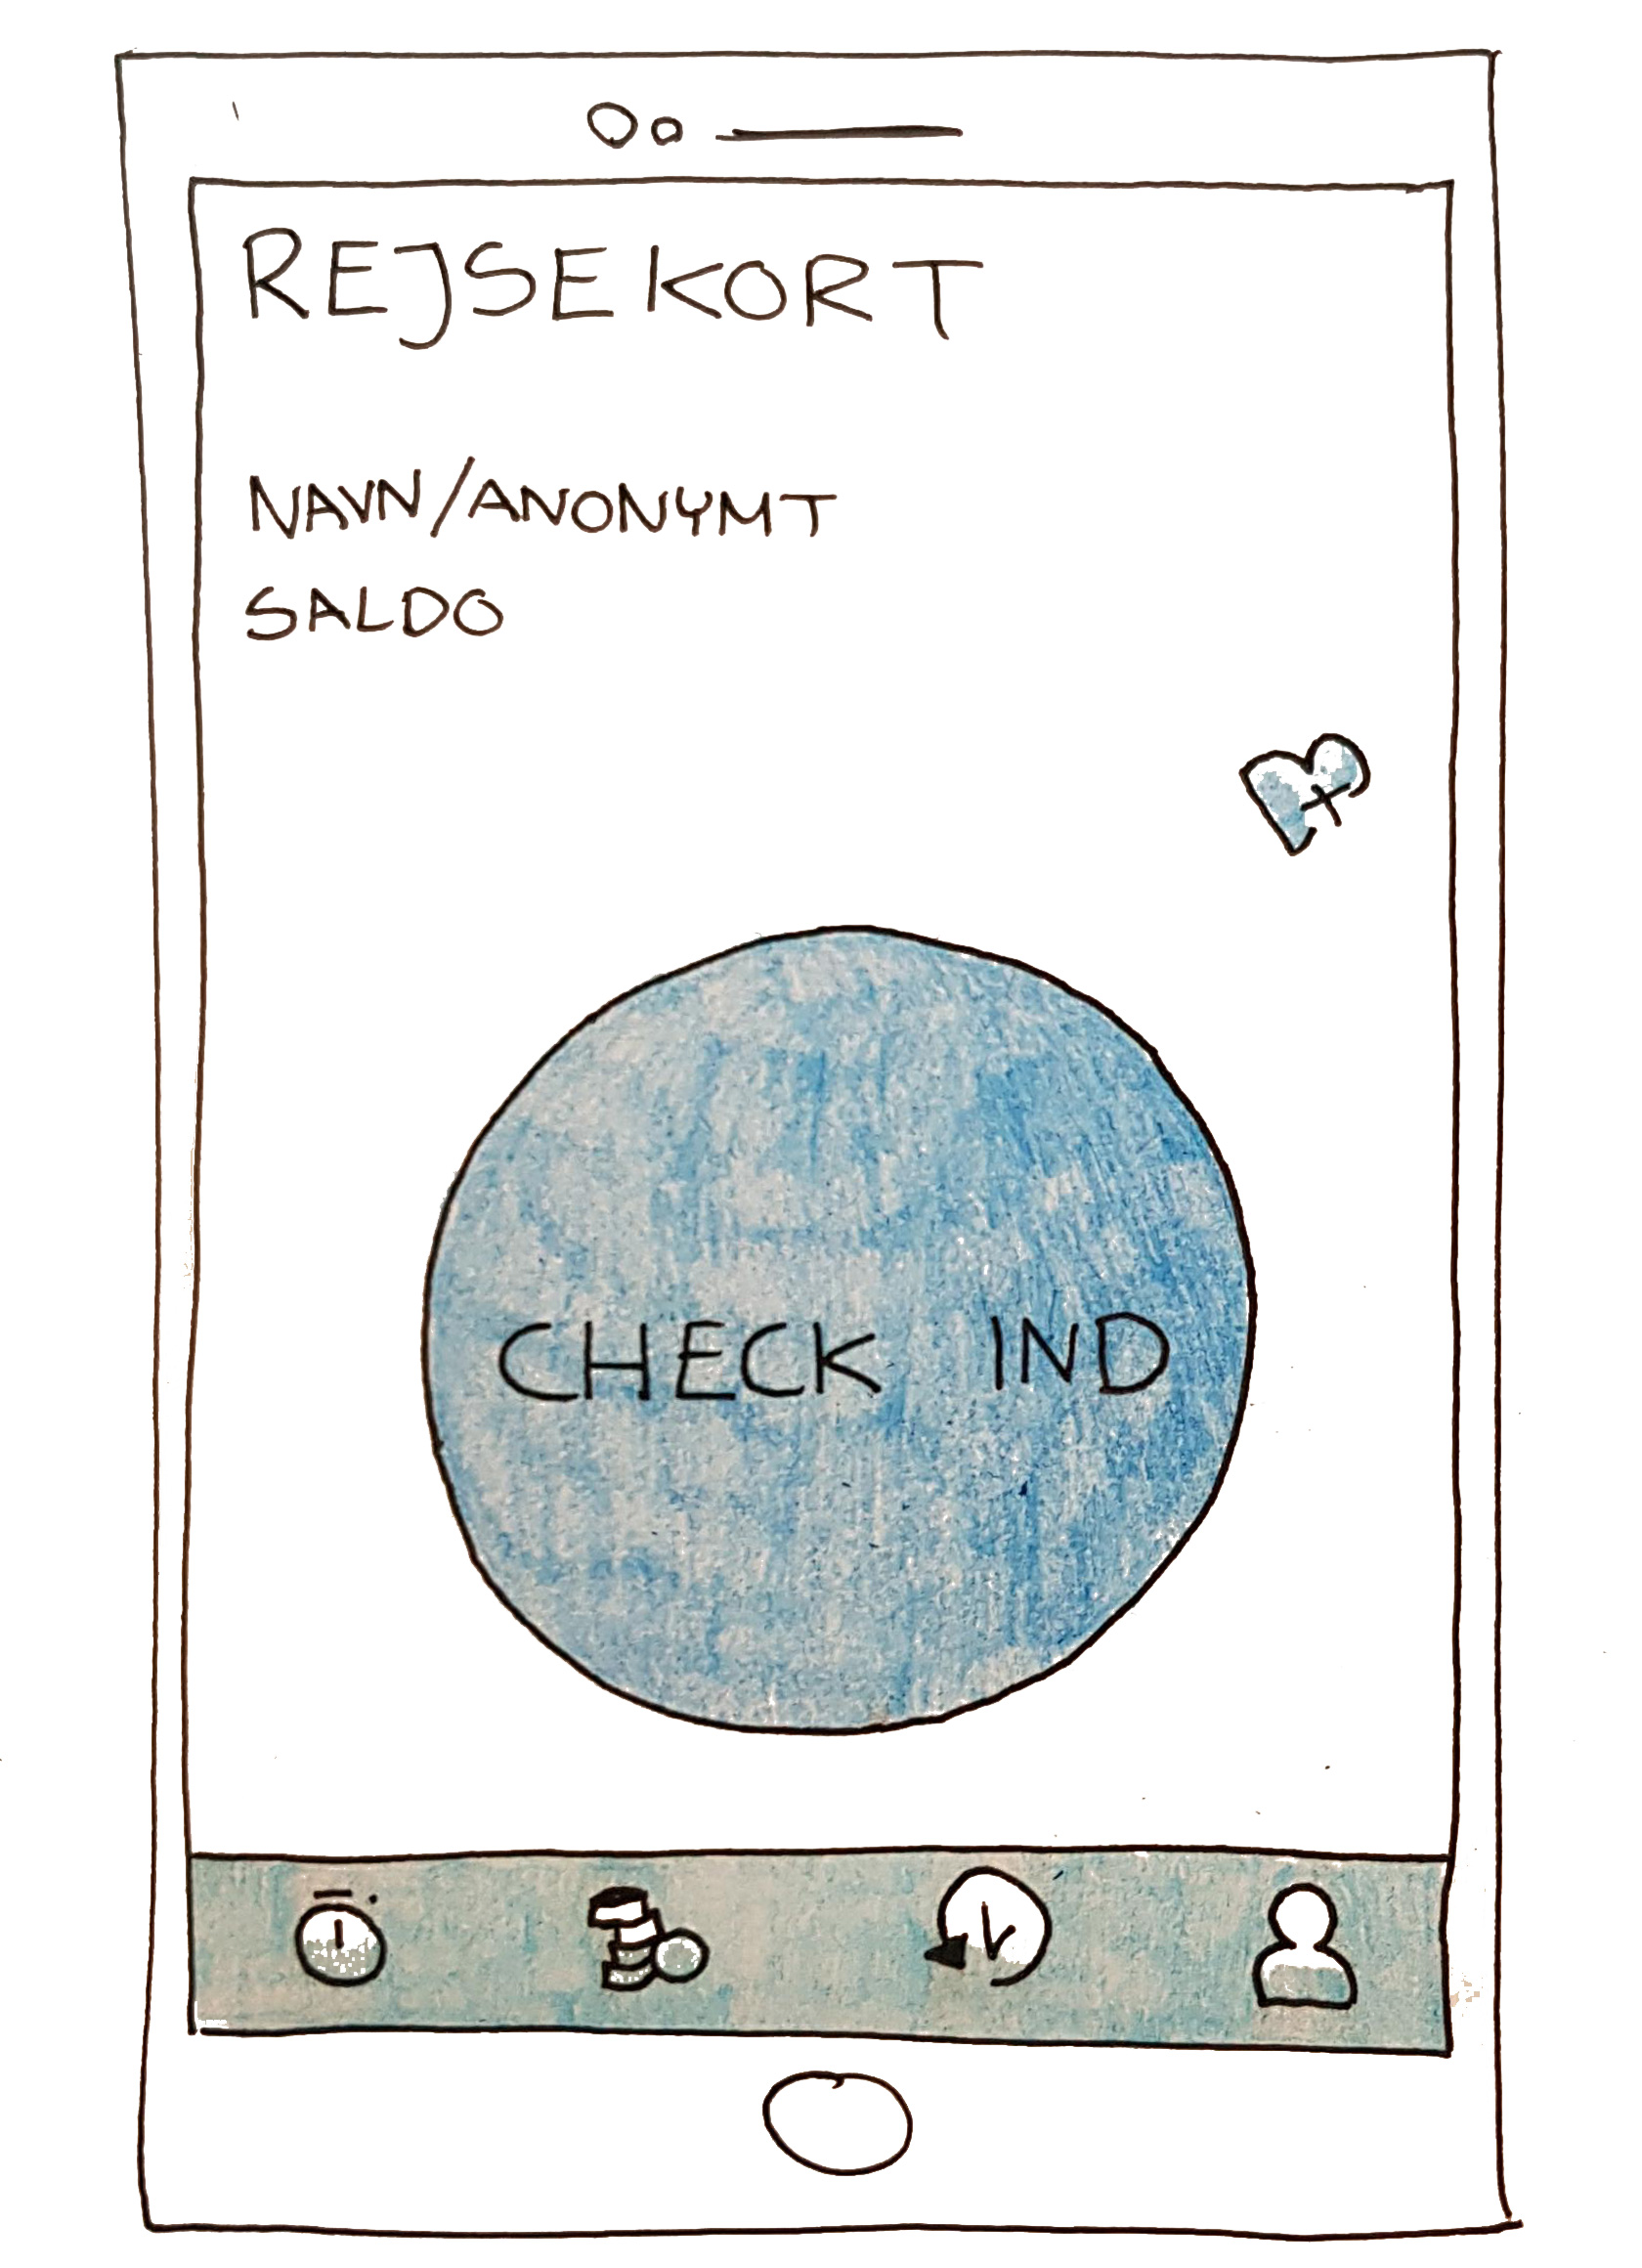 REJSEKORT
NAVN/ANONYMT
SALDO
CHECK IND